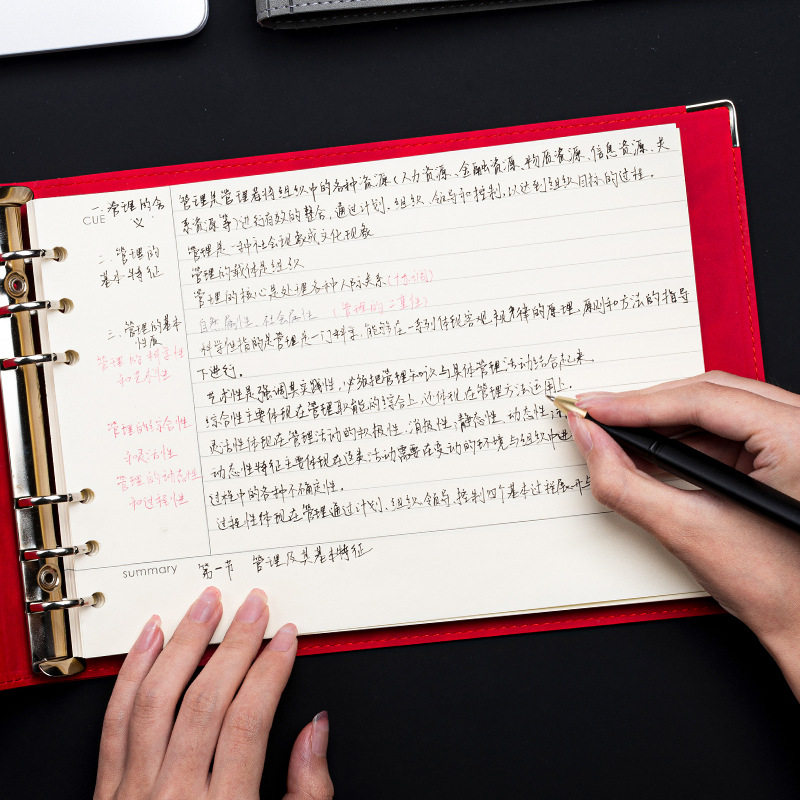 CUE
一.管理的含
义.
二.管理的
基本特征
三.管理的基本
性质
管理的科学性
和艺术性
管理的综合性
和灵活性
管理的动态性
和过程性
管理是管理者将组织中的各种资源(人力资源、金融资源、物质资源、信息资源、关
系资源等)进行有效的整合,通过计划、组织、领导和控制,以达到组织目标的过程.
管理是一种社会现象或文化现象
管理的载体是组织
管理的核心是处理各种人际关系(协调)
自然属性.社会属性 (管理的二重性)
科学性指的是管理是一门科学,能够在一系列体现客观规律的原理、原则和方法的指导
下进行.
艺术性是强调其实践性,必须把管理知识与具体管理活动结合起来.
综合性主要体现在管理职能的综合上,还体现在管理方法运用上.
灵活性体现在管理活动的积极性,消极性,静态性,动态性
动态性特征主要体现在这类活动需要在变动的环境与组织中进
过程中的各种不确定性.
过程性体现在管理通过计划、组织、领导、控制四个基本过程展开
summary 第一节 管理及其基本特征